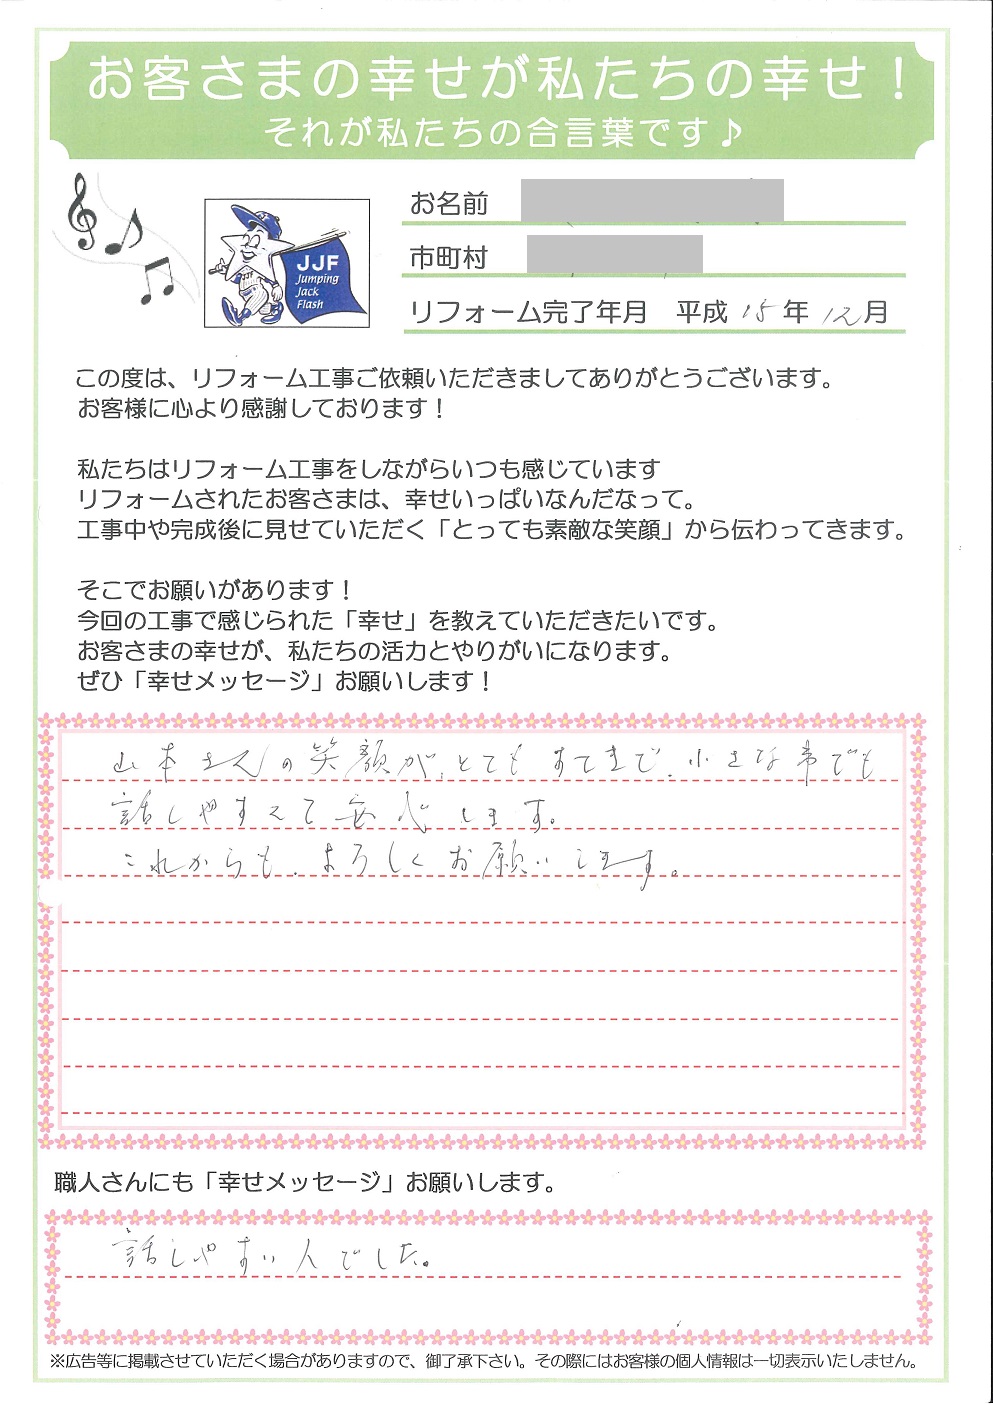 お客さまの幸せが私たちの幸せ！
それが私たちの合言葉です♪
お名前
市町村
JJF
Jumping
Jack
Flash
リフォーム完了年月 平成 15 年 12 月
この度は、リフォーム工事ご依頼いただきましてありがとうございます。
お客様に心より感謝しております！
私たちはリフォーム工事をしながらいつも感じています
リフォームされたお客さまは、幸せいっぱいなんだなって。
工事中や完成後に見せていただく「とっても素敵な笑顔」から伝わってきます。
そこでお願いがあります！
今回の工事で感じられた「幸せ」を教えていただきたいです。
お客さまの幸せが、私たちの活力とやりがいになります。
ぜひ「幸せメッセージ」お願いします！
山本さんの笑顔が、とてもすてきで、小さな事でも
話しやすくて安心します。
これからも、よろしくお願いします。
職人さんにも「幸せメッセージ」お願いします。
話しやすい人でした。
※広告等に掲載させていただく場合がありますので、御了承下さい。その際にはお客様の個人情報は一切表示いたしません。